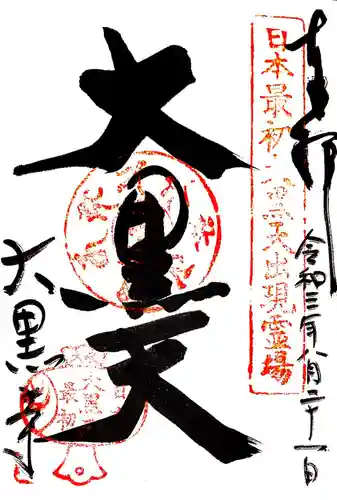 奉拝
令和三年八月二十一日
日本最初大黒天出現霊場
大黒天
大黒寺